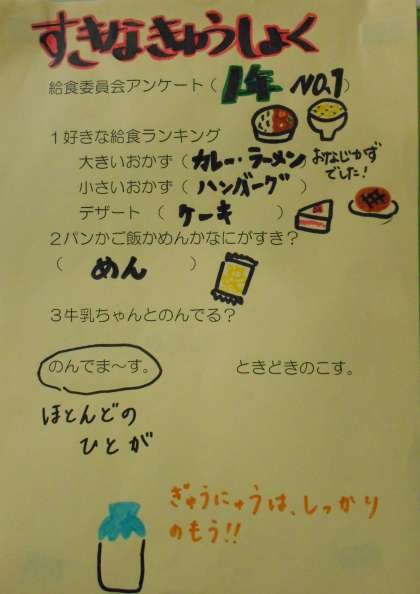 すきなきゅうしょく
給食委員会アンケート(1年 NO.1)
1好きな給食ランキング
大きいおかず(カレー・ラーメン)おなじかずでした!
小さいおかず(ハンバーグ)
デザート(ケーキ)
2パンかご飯かめんかなにがすき?
(めん)
3牛乳ちゃんとのんでる?
のんでま〜す。 ときどきのこす。
ほとんどの
ひとが
ぎゅうにゅうは、しっかり
のもう!!